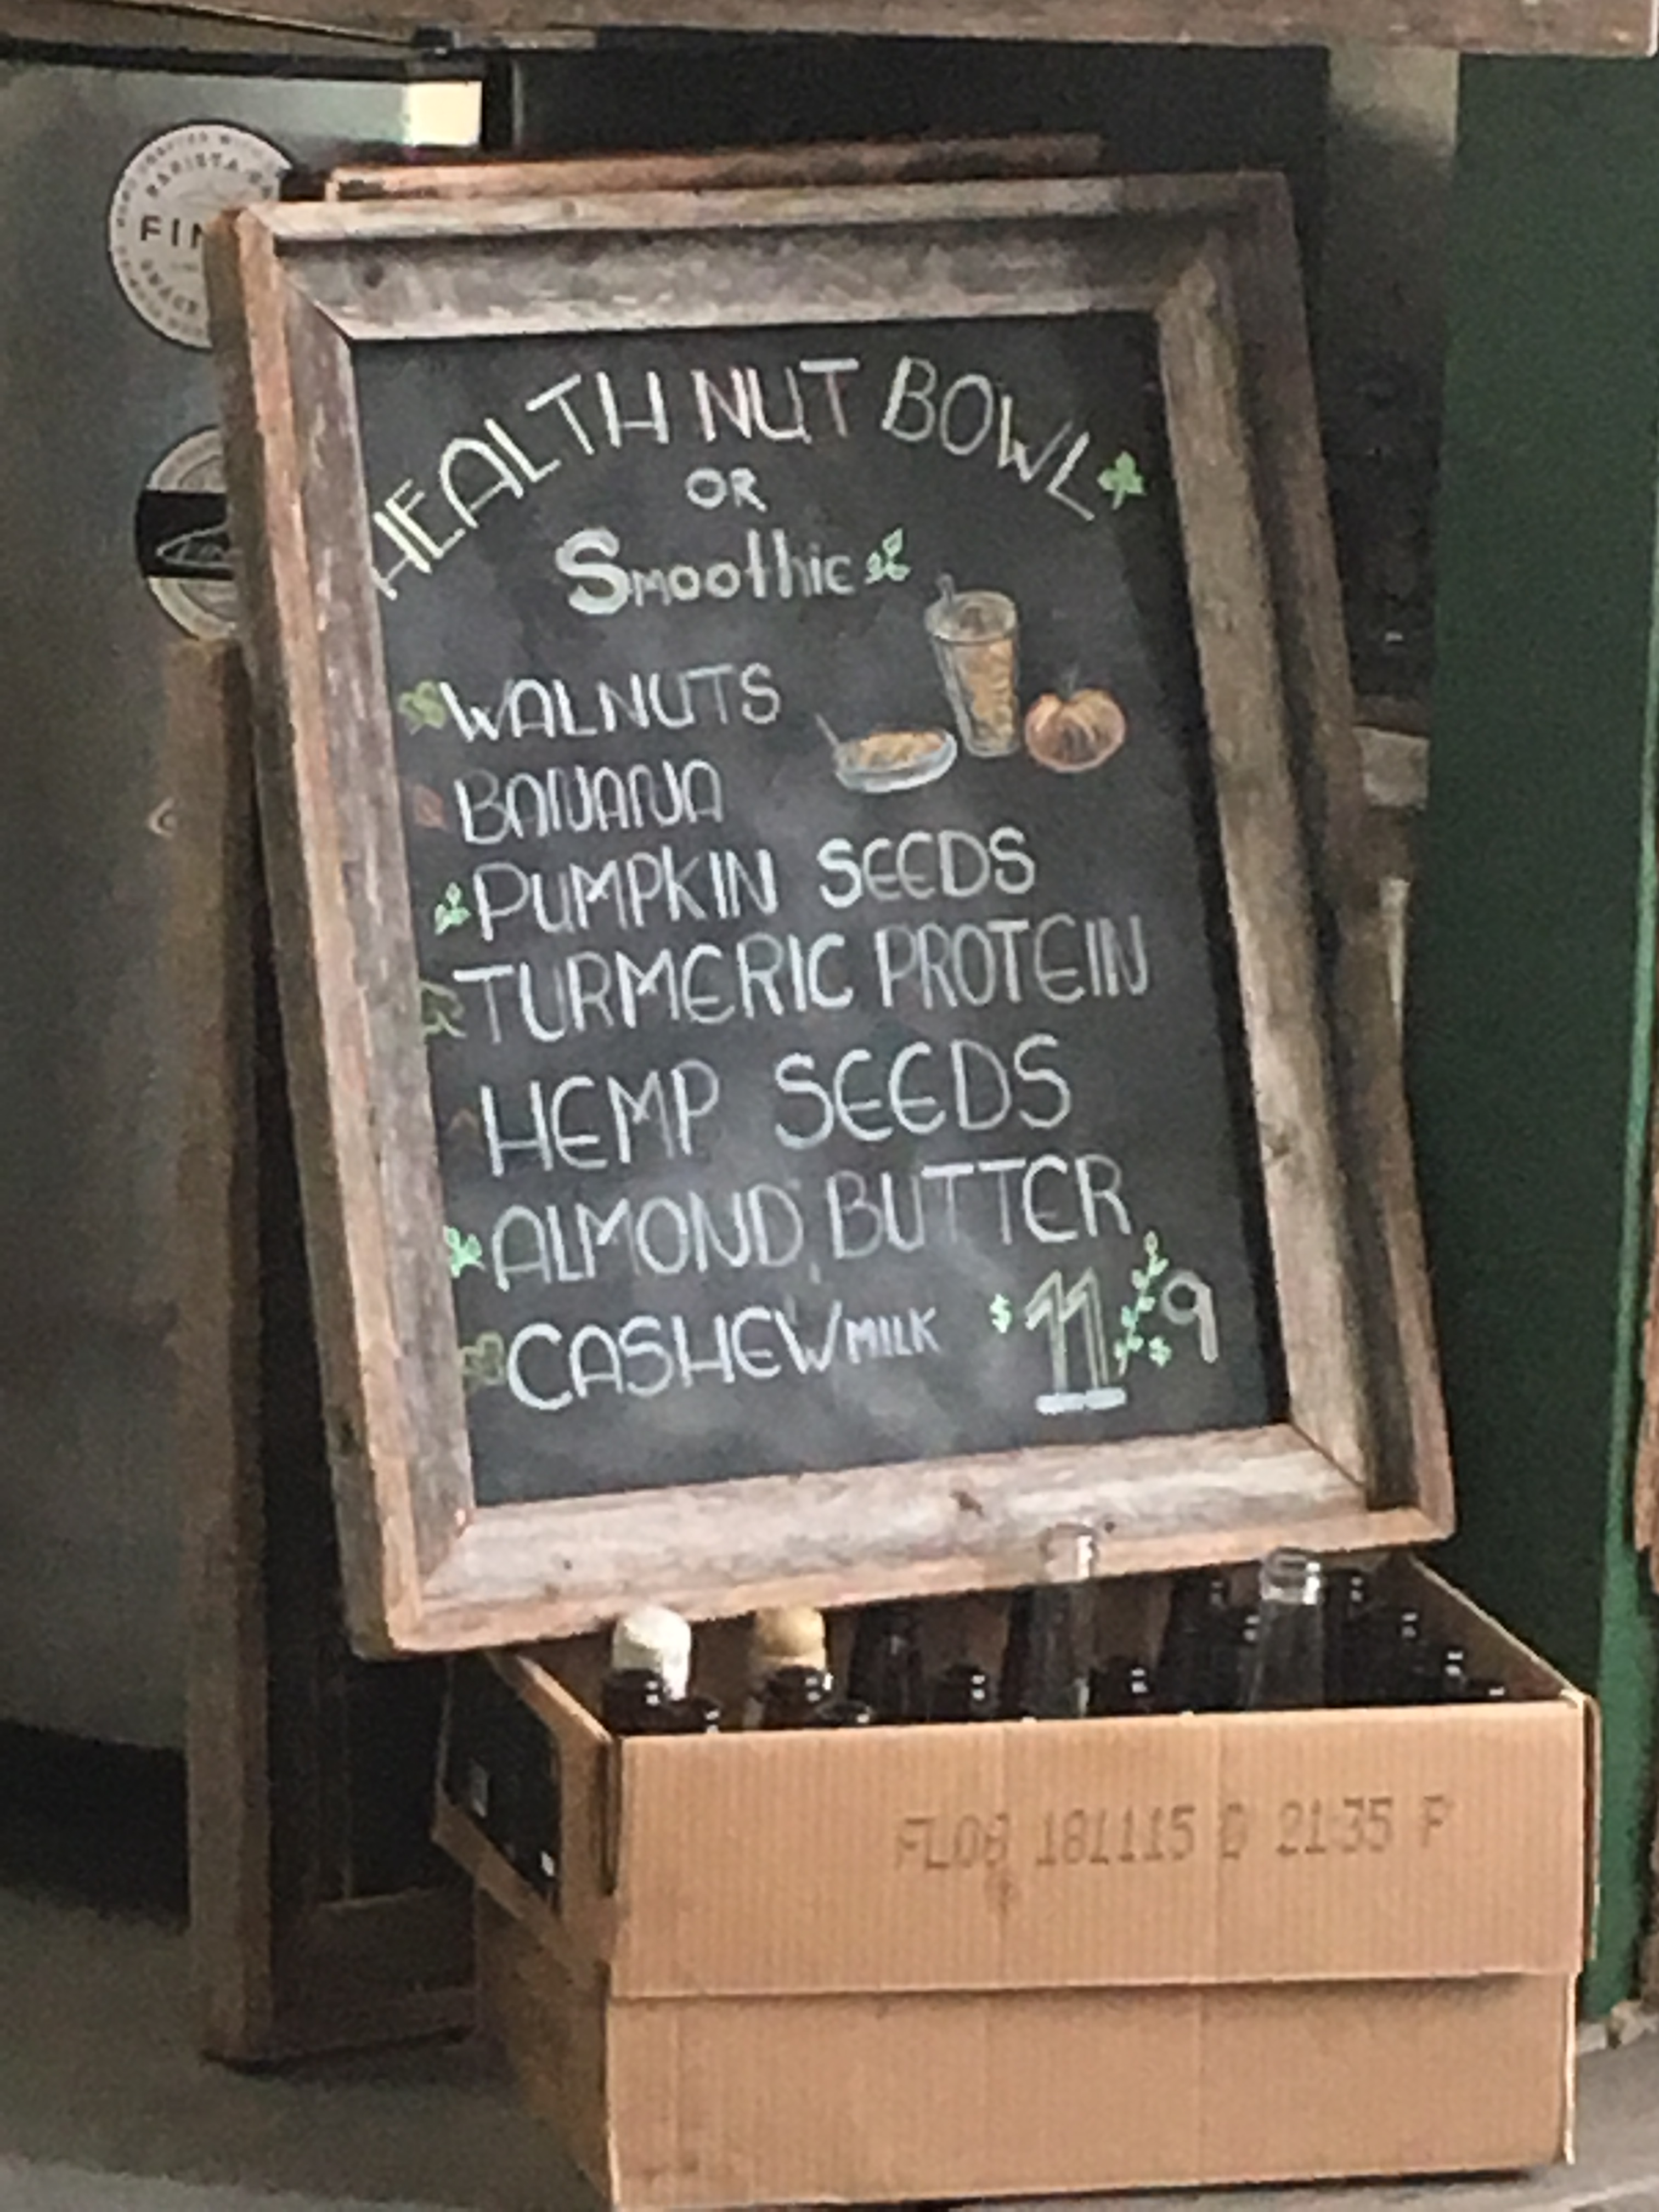 HEALTH NUT BOWL
OR
Smoothie
WALNUTS
BANANA
PUMPKIN SEEDS
TURMERIC PROTEIN
HEMP SEEDS
ALMOND BUTTER
CASHEW MILK $11 $9
FL08 181115 21:35 P